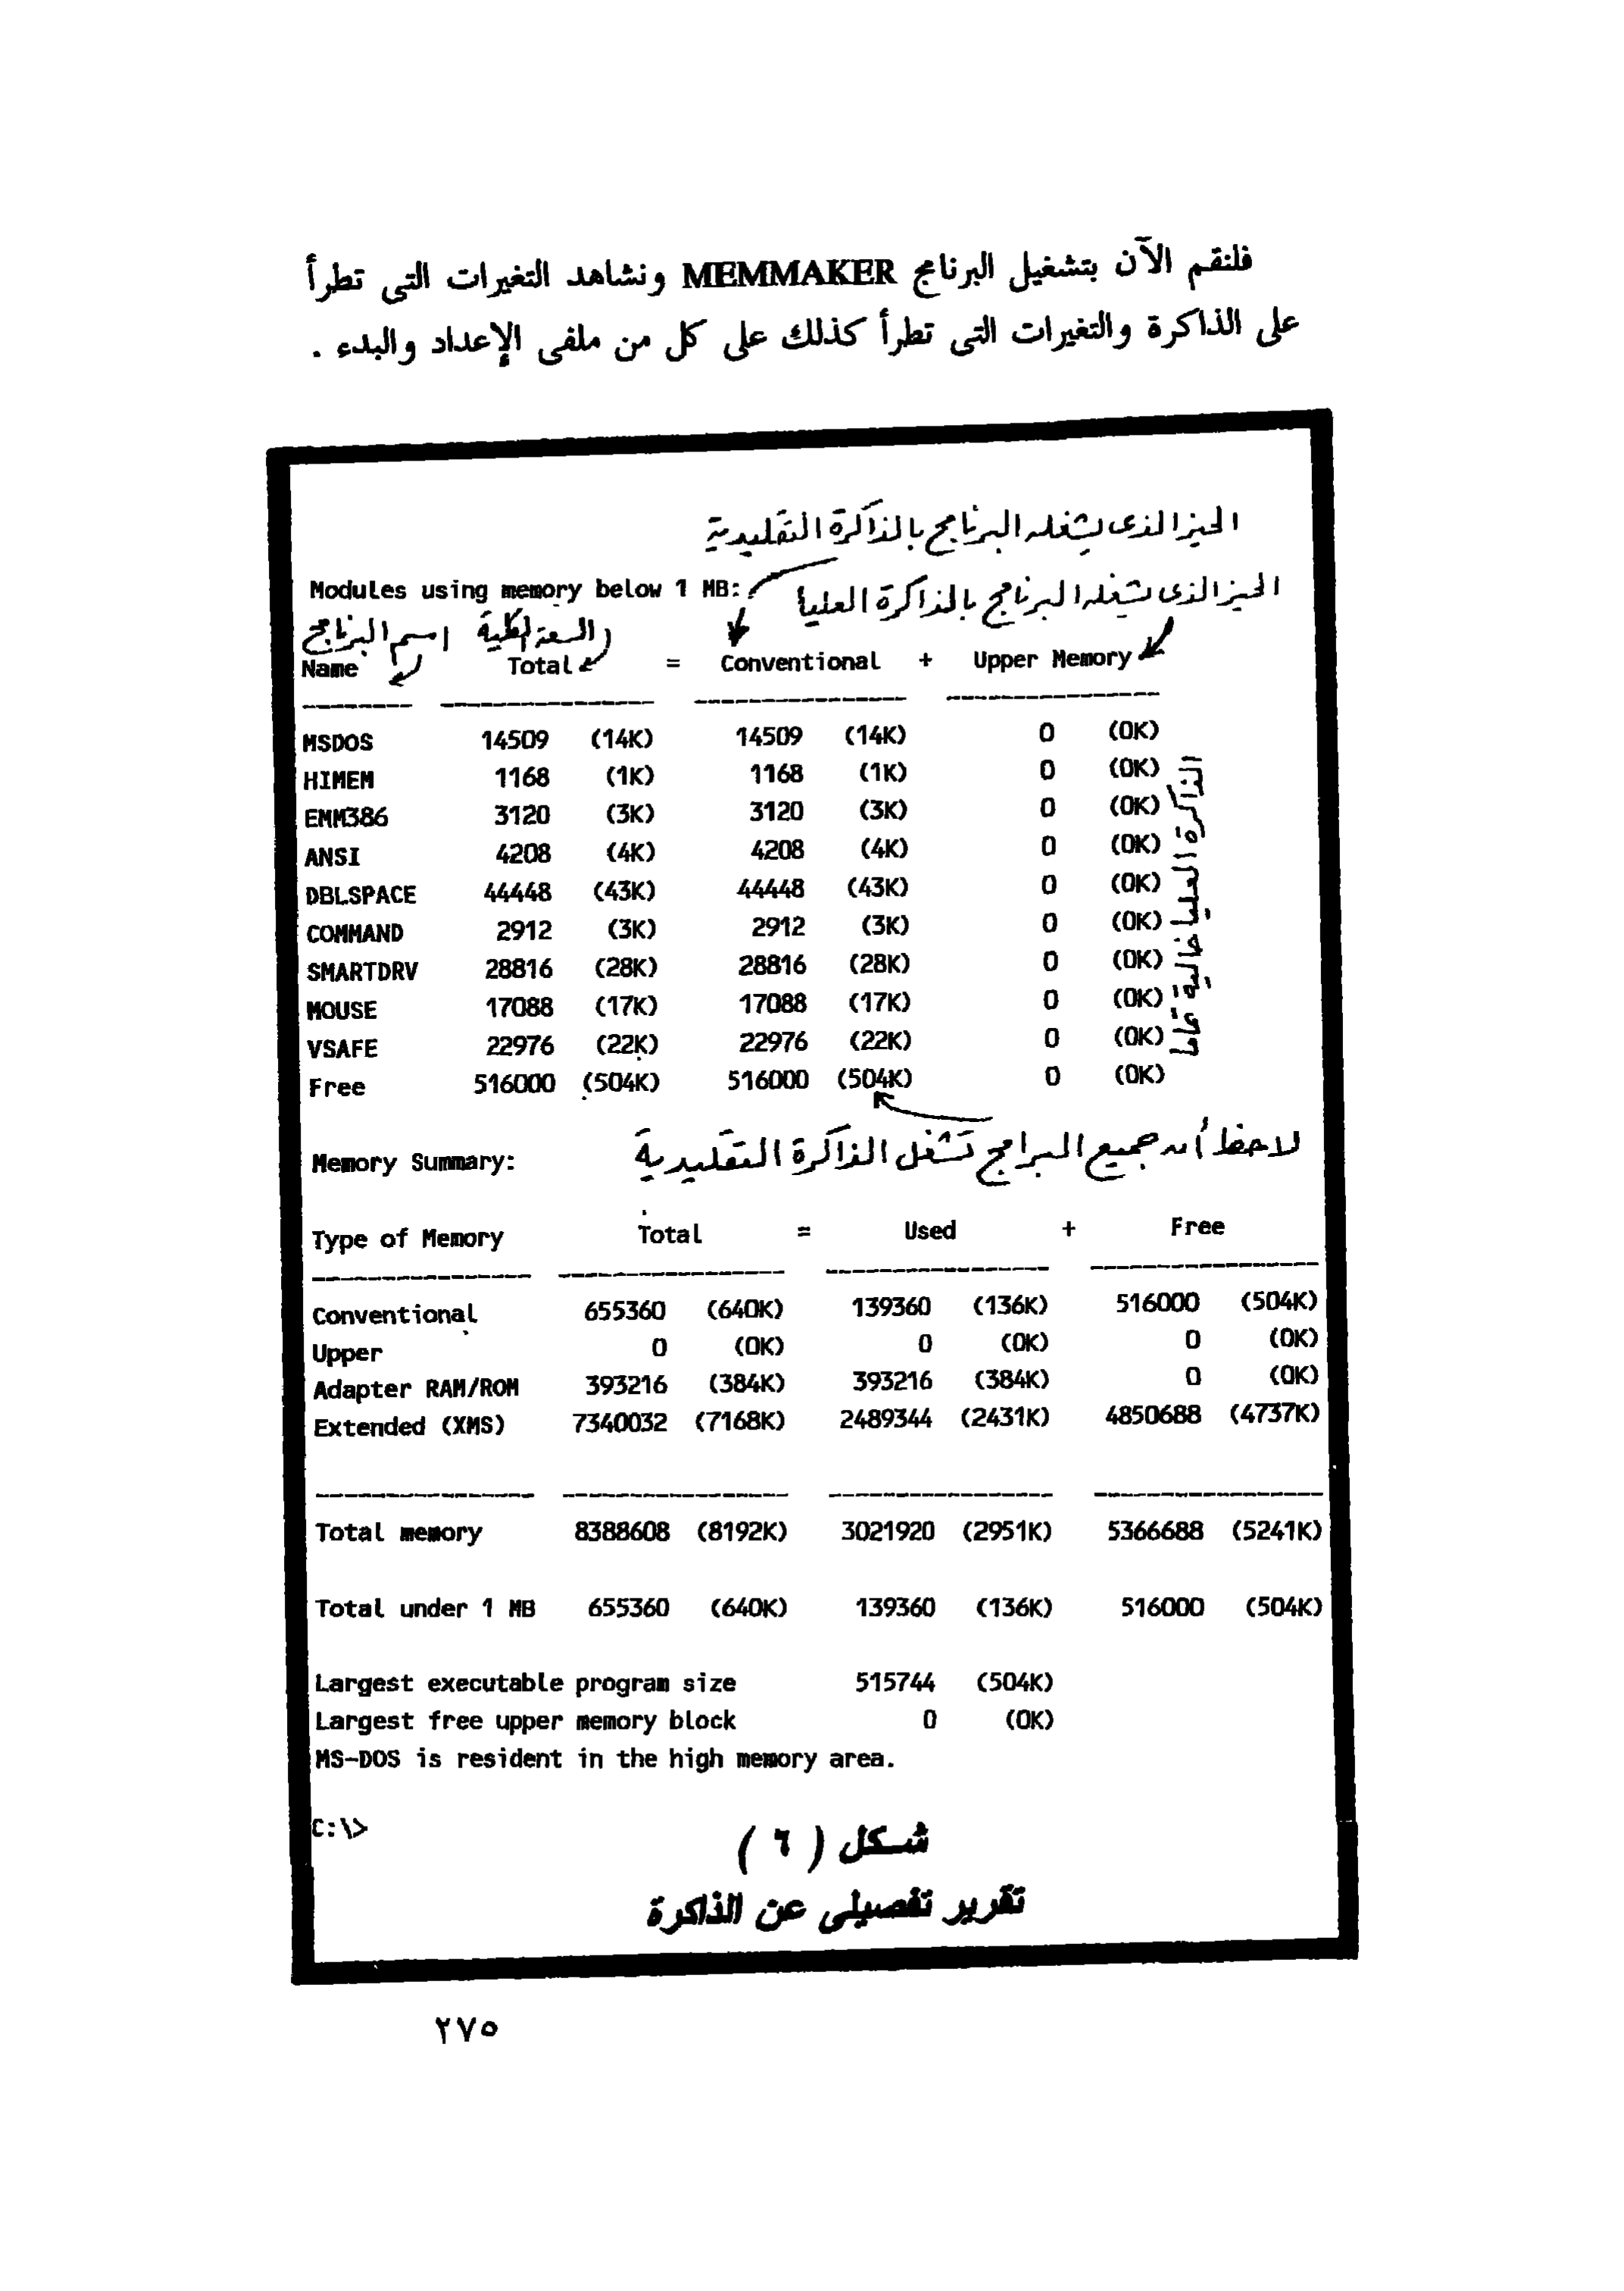 فلنقم الآن بتشغيل البرنامج MEMMAKER ونشاهد التغيرات التى تطرأ
على الذاكرة والتغيرات التى تطرأ كذلك على كل من ملفى الإعداد والبدء .
الحيز الذى يشغله البرنامج بالذاكرة التقليدية
Modules using memory below 1 MB:
الحيز الذى يشغله البرنامج بالذاكرة العليا
اسم البرنامج السعة الكلية
Name Total = Conventional + Upper Memory
-------- ---------------- ---------------- ----------------
MSDOS 14509 (14K) 14509 (14K) 0 (0K)
HIMEM 1168 (1K) 1168 (1K) 0 (0K)
EMM386 3120 (3K) 3120 (3K) 0 (0K)
ANSI 4208 (4K) 4208 (4K) 0 (0K)
DBLSPACE 44448 (43K) 44448 (43K) 0 (0K)
COMMAND 2912 (3K) 2912 (3K) 0 (0K)
SMARTDRV 28816 (28K) 28816 (28K) 0 (0K)
MOUSE 17088 (17K) 17088 (17K) 0 (0K)
VSAFE 22976 (22K) 22976 (22K) 0 (0K)
Free 516000 (504K) 516000 (504K) 0 (0K)
الذاكرة العليا خالية تماما
لاحظ أن جميع البرامج تشغل الذاكرة التقليدية
Memory Summary:
Type of Memory Total = Used + Free
---------------- ---------------- ---------------- ----------------
Conventional 655360 (640K) 139360 (136K) 516000 (504K)
Upper 0 (0K) 0 (0K) 0 (0K)
Adapter RAM/ROM 393216 (384K) 393216 (384K) 0 (0K)
Extended (XMS) 7340032 (7168K) 2489344 (2431K) 4850688 (4737K)
---------------- ---------------- ---------------- ----------------
Total memory 8388608 (8192K) 3021920 (2951K) 5366688 (5241K)
Total under 1 MB 655360 (640K) 139360 (136K) 516000 (504K)
Largest executable program size 515744 (504K)
Largest free upper memory block 0 (0K)
MS-DOS is resident in the high memory area.
C:\>
شكل ( ٦ )
تقرير تفصيلى عن الذاكرة
٢٧٥